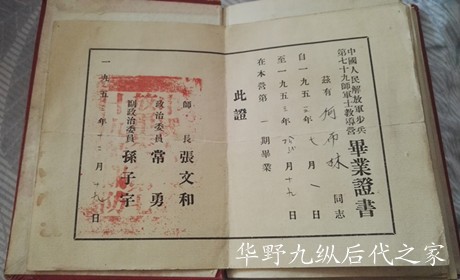 中國人民解放軍步兵
第七十九師軍士教導營
畢業證書
茲有 同志
自一九五三年七月一日
至一九五三年 月十九日
在本營第一期畢業
此證
師長 張文和
政治委員 常勇
副政治委員 孫子宇
一九五 年 月 九日
华野九纵后代之家